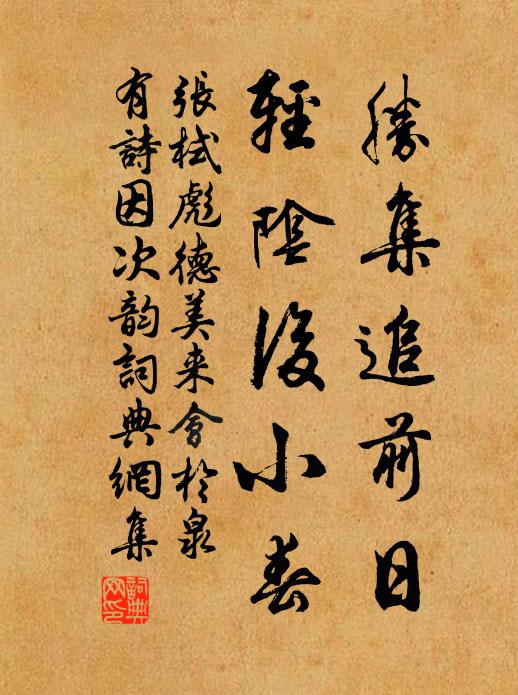 勝集追前日
輕陰後小春
張栻彪德美来會於泉
有詩因次韵詞典網集
詞典
网印